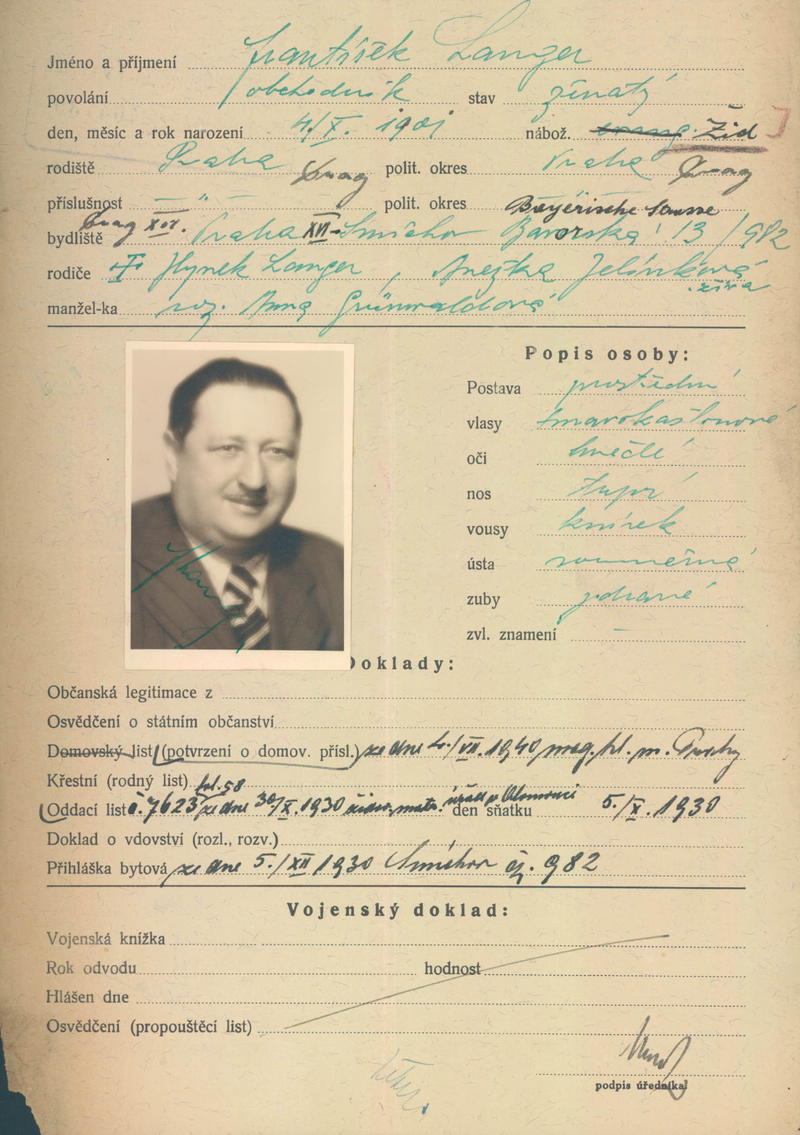 Jméno a příjmení František Langer
povolání obchodník stav ženatý
den, měsíc a rok narození 4./X. 1901 nábož. evang. Žid
rodiště Praha Prag polit. okres Praha Prag
příslušnost — " — polit. okres Bayerische
Prag XVI.
bydliště Praha XVI-Smíchov Bavorská 13/982
rodiče Hynek Langer, Anežka Jelínková
živa
manžel-ka roz. Anna Grünwaldová
Popis osoby:
Postava prostřední
vlasy tmavokaštanové
oči hnědé
nos tupý
vousy knírek
ústa souměrná
zuby zdravé
zvl. znamení —
Doklady:
Občanská legitimace z
Osvědčení o státním občanství
Domovský list (potvrzení o domov. přísl.) ze dne /VII. 1940 mag. hl. m. Prahy
Křestní (rodný list) fol. 58
Oddací list č. 7623 ze dne 30/X. 1930 židov. matr. úřad v Olomouci den sňatku 5./X. 1930
Doklad o vdovství (rozl., rozv.)
Přihláška bytová ze dne 5./XII 1930 Smíchov čp. 982
Vojenský doklad:
Vojenská knížka
Rok odvodu hodnost
Hlášen dne
Osvědčení (propouštěcí list)
podpis úředníka